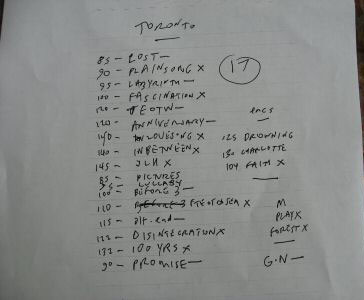 TORONTO
17
85 - LOST -
90 - PLAINSONG X
95 - LABYRINTH -
100 - FASCINATION X
120 - TEOTW -
120 - ANNIVERSARY -
140 - INLOVESONG X
140 - INBETWEEN X
145 - JLH X
85 - PICTURES
LULLABY
100 - BEFORE 3 -
110 - FTEOTDGSEA X
115 - Alt. end -
122 - DISINTEGRATION X
132 - 100 YRS X
90 - PROMISE -
encs
125 DROWNING
130 CHARLOTTE
104 FAITH X
M
PLAY X
FOREST X
G.N -